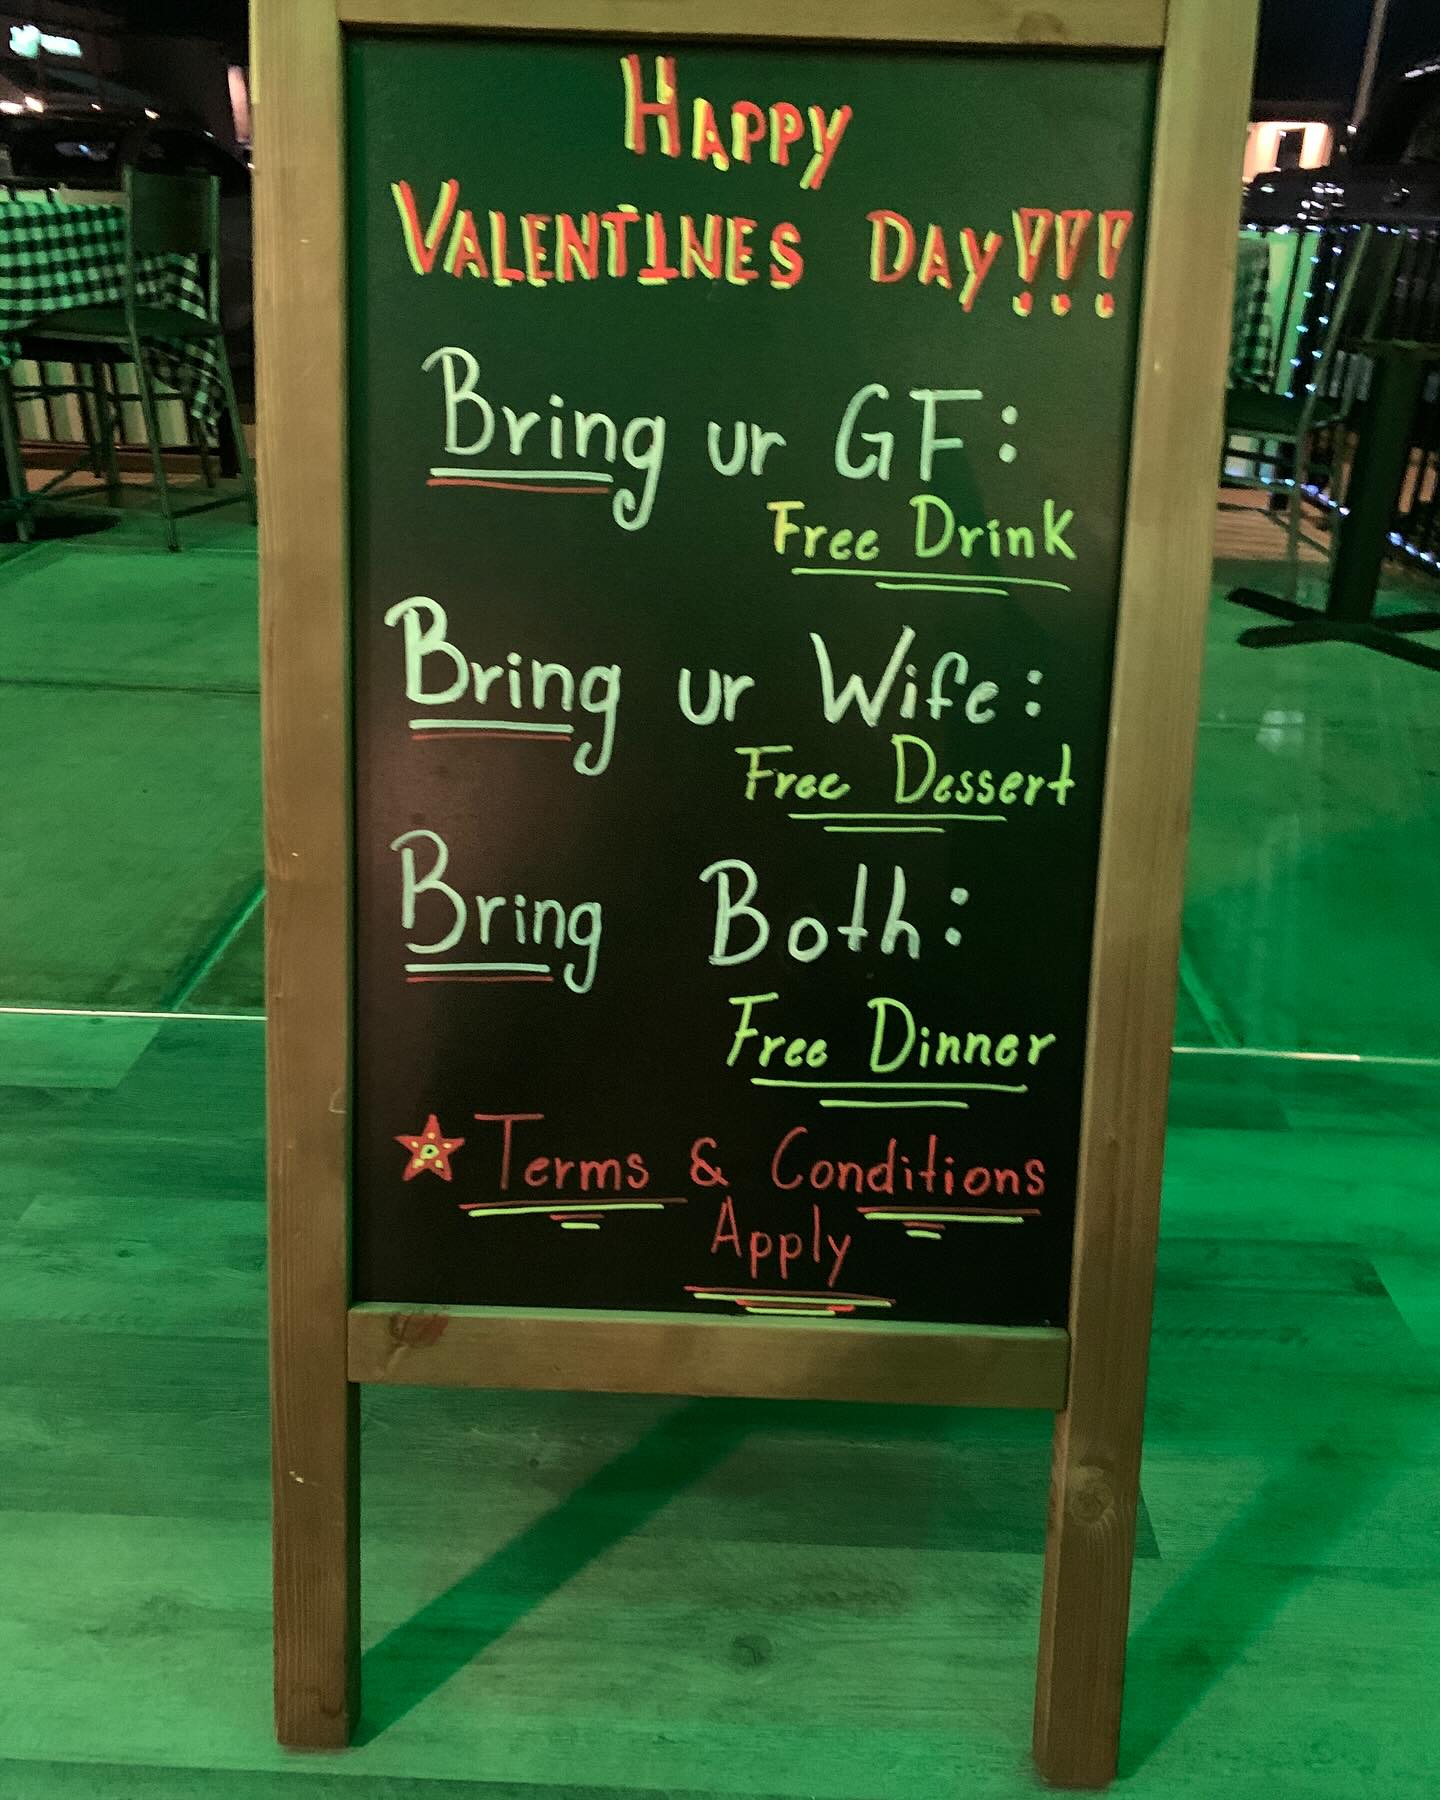 HAPPY
VALENTINES DAY!!!
Bring ur GF:
Free Drink
Bring ur Wife:
Free Dessert
Bring Both:
Free Dinner
Terms & Conditions
Apply